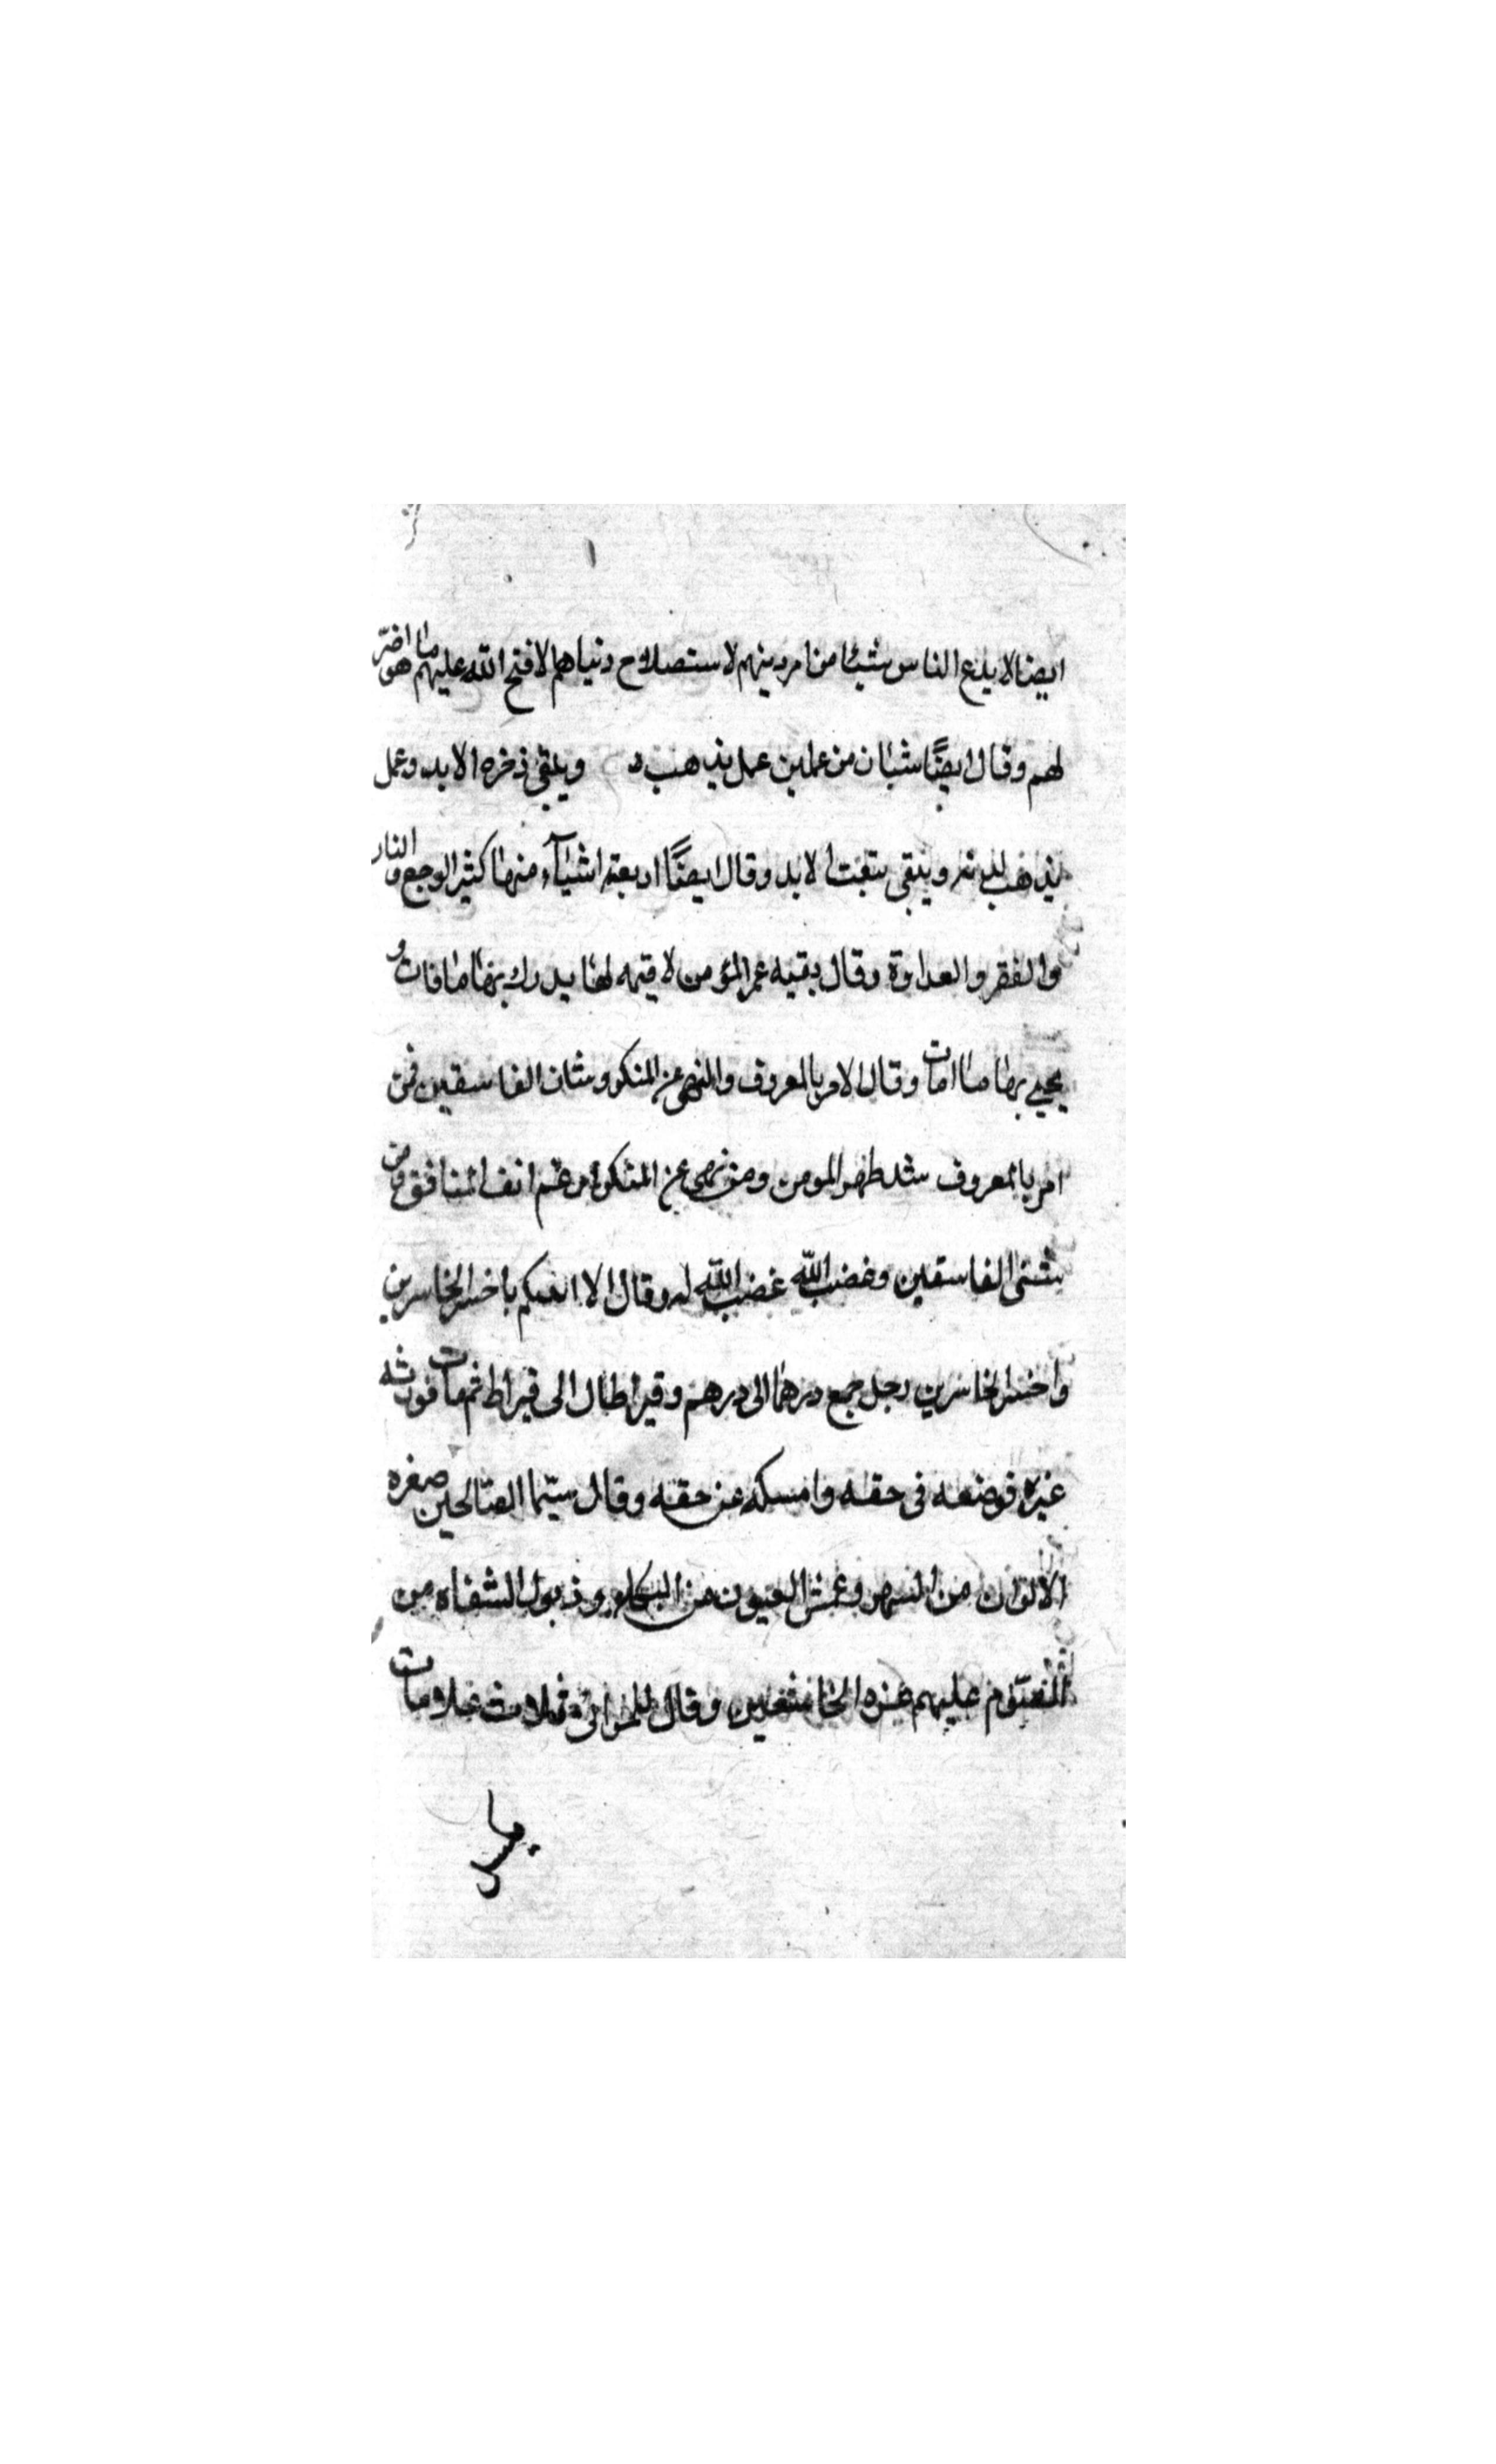 ايضا لا يدع الناس شيئا من امر دينهم لاستصلاح دنياهم الا فتح الله عليهم ما هو اضرّ
لهم وقال ايضًا شتان من عملين عمل يذهب ويبقى ذخره الابد وعمل
يذهب ويبقى تبعته الابد وقال ايضًا اربعة اشياء منها كثير الوجع والنار
والفقر والعداوة وقال بقيه عمر المؤمن لا قيمه لها يدرك بها ما فات و
يحيي بها ما امات وقال الامر بالمعروف والنهى عن المنكر وشنان الفاسقين فمن
امر بالمعروف شد ظهر المومن ومن نهى عن المنكر ارغم انف المنافق ومن
شنى الفاسقين وغضب الله غضب الله له وقال الا انبيكم باخسر الخاسرين
واخسر الخاسرين رجل جمع درهما الى درهم وقيراطا الى قيراط ثم مات فورثه
غيره فوضعه فى حقه وامسكه عن حقه وقال سيما الصالحين صفره
الالوان من السهر وعمش العيون من البكاء وذبول الشفاه من
الصوم عليهم غبره الخاشعين وقال للمرائى ثلاث علامات